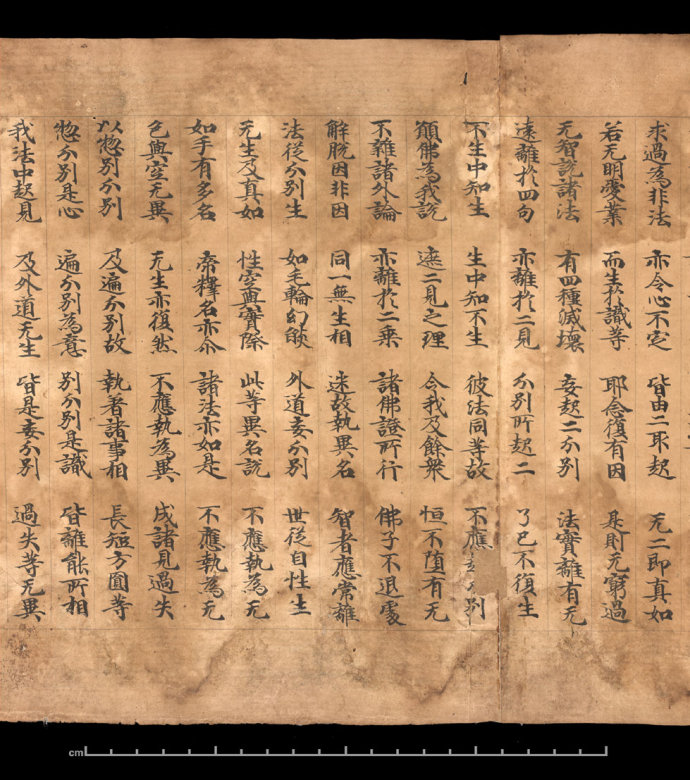 求過為非法 亦令心不定 皆由二取起 无二即真如
若无明愛業 而生於識等 耶念復有因 是則无窮過
无智說諸法 有四種滅壞 妄起二分別 法實離有无
遠離於四句 亦離於二見 分別所起二 了已不復生
不生中知生 生中知不生 彼法同等故 不應 別
願佛為我說 遮二見之理 令我及餘衆 恒不墮有无
不雜諸外論 亦離於二乘 諸佛證所行 佛子不退處
解脫因非因 同一無生相 迷故執異名 智者應常離
法從分別生 如毛輪幻焰 外道妄分別 世從自性生
无生及真如 性空與實際 此等異名說 不應執為无
如手有多名 帝釋名亦尒 諸法亦如是 不應執為无
色與空无異 无生亦復然 不應執為異 成諸見過失
以惣別分別 及遍分別故 執著諸事相 長短方圓等
惣分別是心 遍分別為意 別分別是識 皆離能所相
我法中起見 及外道无生 皆是妄分別 過失等无異
cm